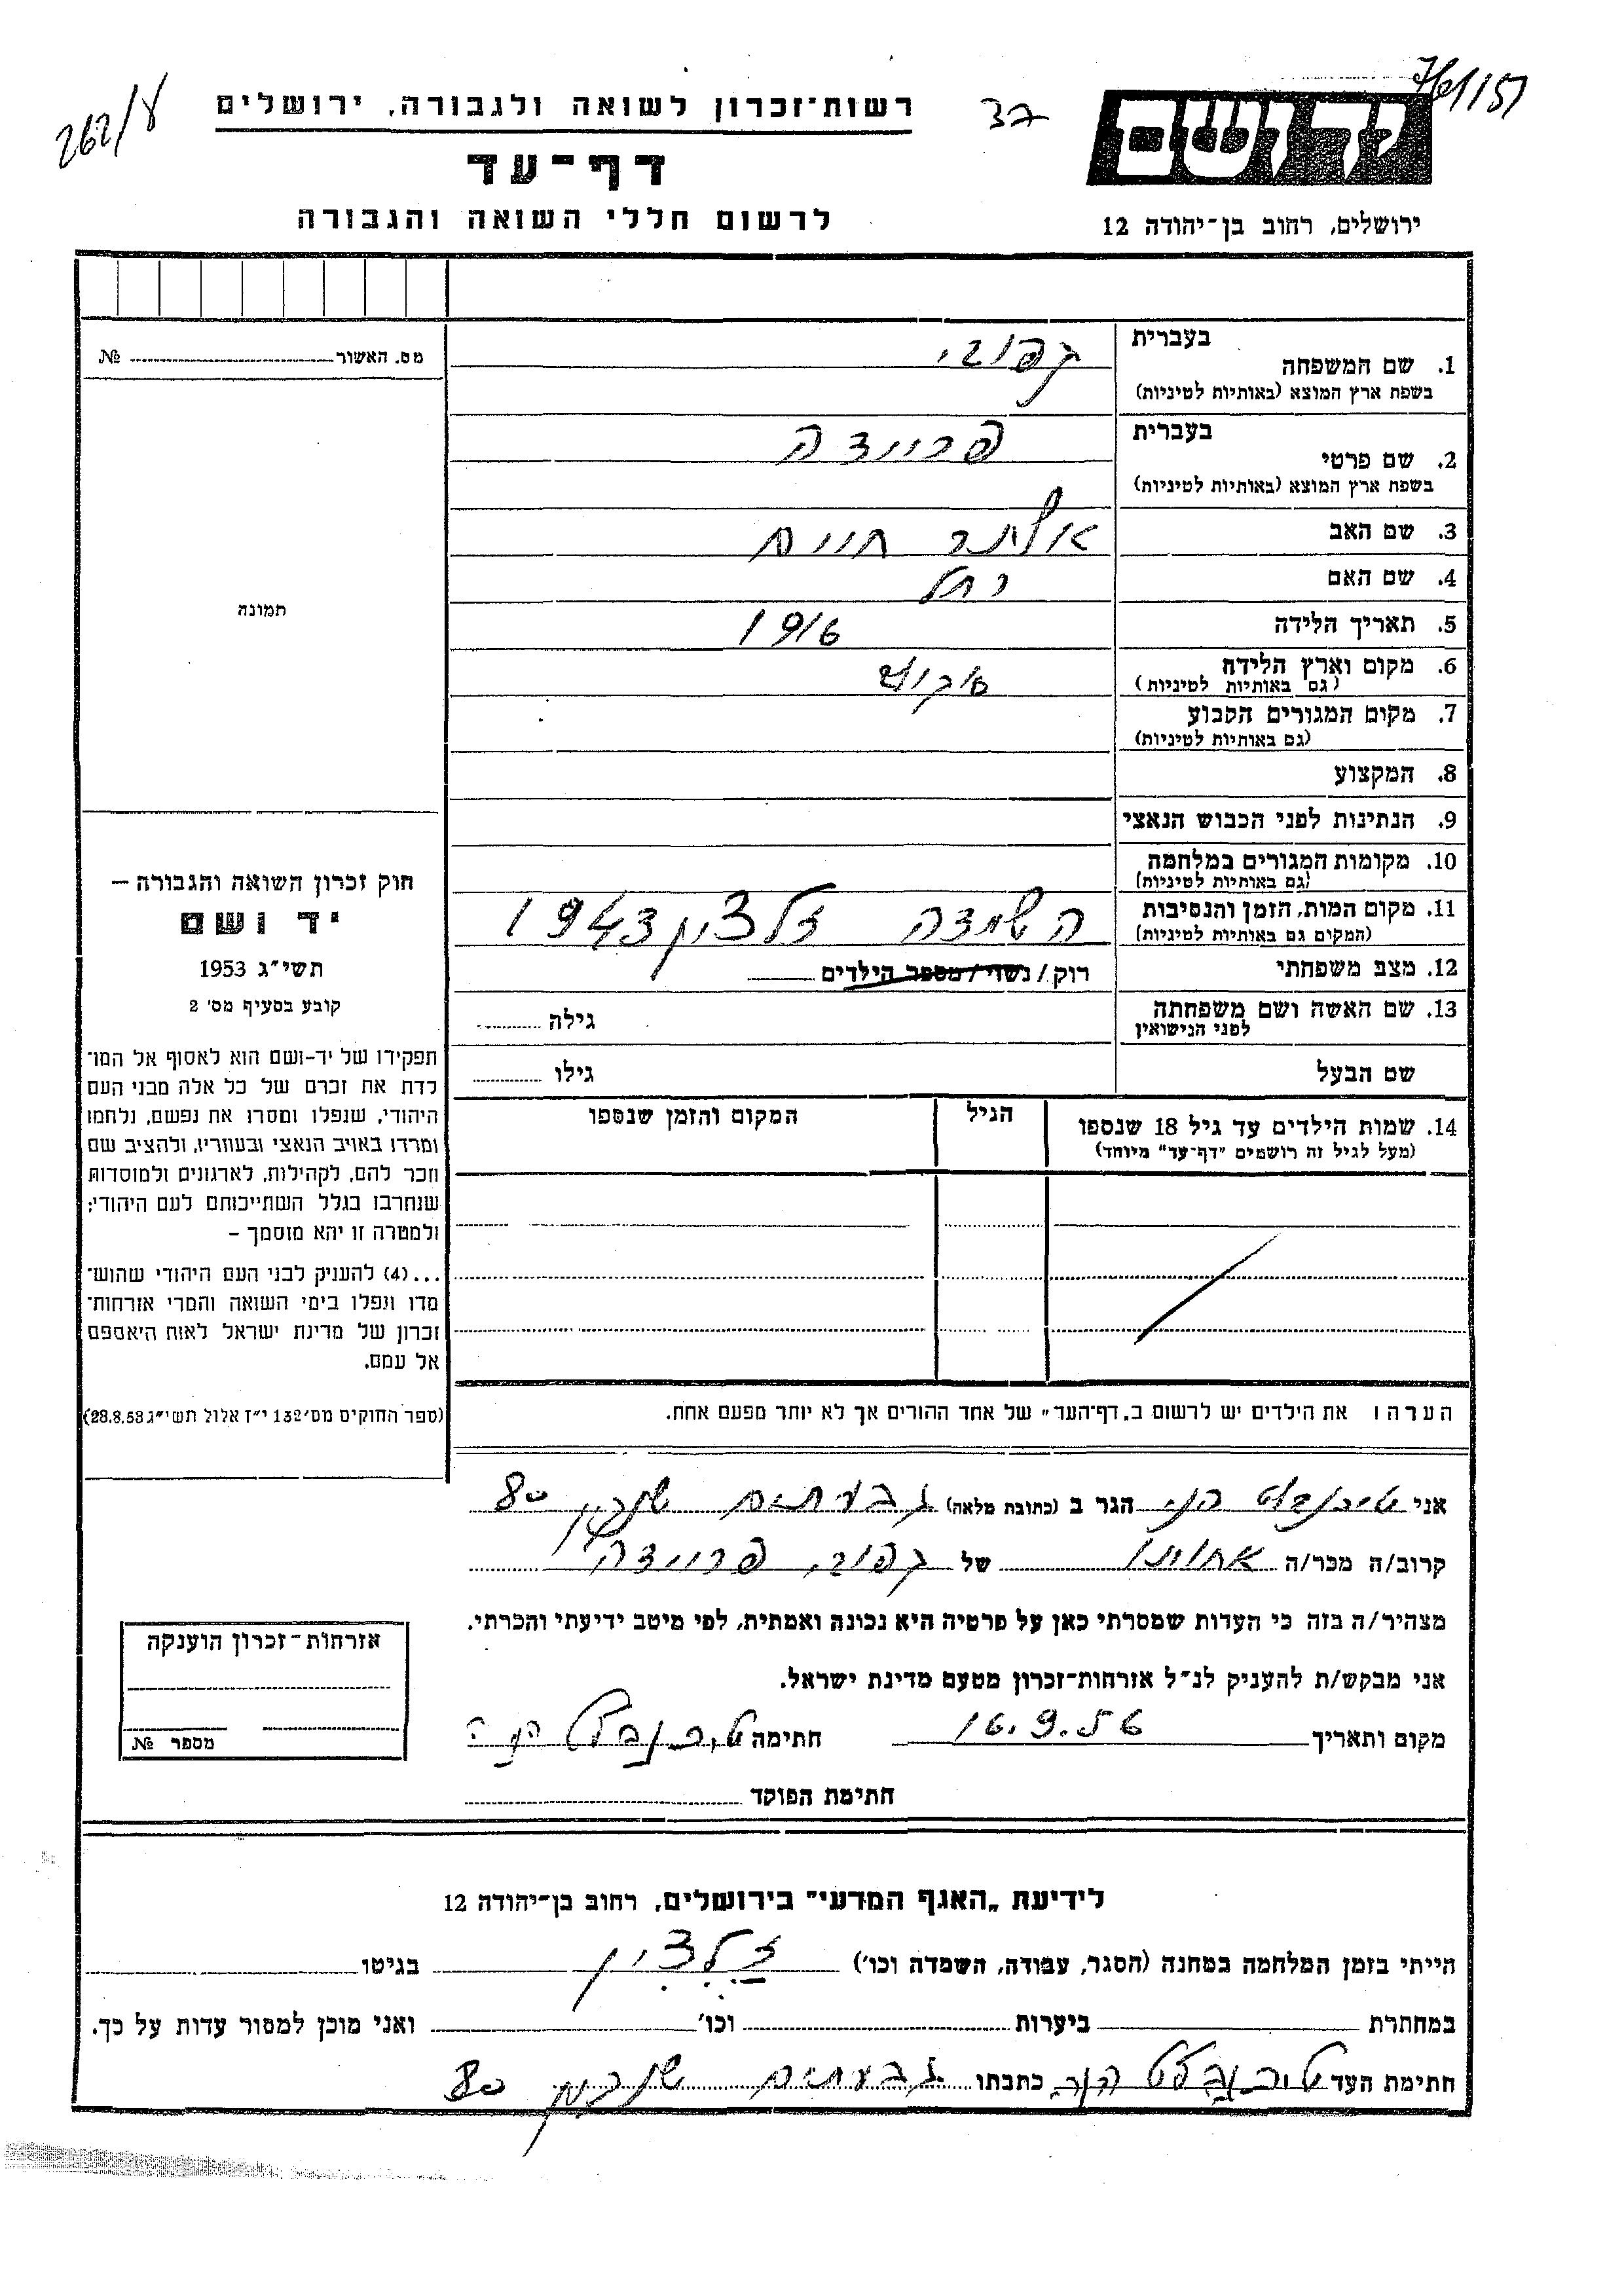 262/ע
רשות־זכרון לשואה ולגבורה, ירושלים
37
דף־עד
לרשום חללי השואה והגבורה
יד ושם
ירושלים, רחוב בן־יהודה 12
מס. האשור № 
בעברית
1. שם המשפחה
בשפת ארץ המוצא (באותיות לטיניות)
בעברית
2. שם פרטי פריידה
בשפת ארץ המוצא (באותיות לטיניות)
3. שם האב חיים
4. שם האם רחל
5. תאריך הלידה 1916
6. מקום וארץ הלידה
(גם באותיות לטיניות)
7. מקום המגורים הקבוע
(גם באותיות לטיניות)
8. המקצוע
9. הנתינות לפני הכבוש הנאצי
10. מקומות המגורים במלחמה
(גם באותיות לטיניות)
11. מקום המות, הזמן והנסיבות השמדה 1943
(המקום גם באותיות לטיניות)
12. מצב משפחתי רוק/נשוי/מספר הילדים
13. שם האשה ושם משפחתה גילה
לפני הנישואין
שם הבעל גילו
תמונה
חוק זכרון השואה והגבורה –
יד ושם
תשי״ג 1953
קובע בסעיף מס׳ 2
תפקידו של יד-ושם הוא לאסוף אל המו־
לדת את זכרם של כל אלה מבני העם
היהודי, שנפלו ומסרו את נפשם, נלחמו
ומרדו באויב הנאצי ובעוזריו, ולהציב שם
וזכר להם, לקהילות, לארגונים ולמוסדות
שנחרבו בגלל השתייכותם לעם היהודי;
ולמטרה זו יהא מוסמך –
...(4) להעניק לבני העם היהודי שהוש־
מדו ונפלו בימי השואה והמרי אזרחות־
זכרון של מדינת ישראל לאות היאספם
אל עמם.
(ספר החוקים מס׳ 132 י״ז אלול תשי״ג 28.8.53)
14. שמות הילדים עד גיל 18 שנספו הגיל המקום והזמן שנספו
(מעל לגיל זה רושמים ״דף־עד״ מיוחד)
הערה: את הילדים יש לרשום ב„דף־העד״ של אחד ההורים אך לא יותר מפעם אחת.
אני הגר ב (כתובת מלאה) גבעתיים 80
קרוב/ה מכר/ה של פריידה
מצהיר/ה בזה כי העדות שמסרתי כאן על פרטיה היא נכונה ואמתית, לפי מיטב ידיעתי והכרתי.
אני מבקש/ת להעניק לנ״ל אזרחות־זכרון מטעם מדינת ישראל.
מקום ותאריך 16.9.56 חתימה
חתימת הפוקד
אזרחות־זכרון הוענקה
מספר №
לידיעת „האגף המדעי״ בירושלים, רחוב בן־יהודה 12
הייתי בזמן המלחמה במחנה (הסגר, עבודה, השמדה וכו׳) בגיטו
במחתרת ביערות וכו׳ ואני מוכן למסור עדות על כך.
חתימת העד כתבתו גבעתיים 80